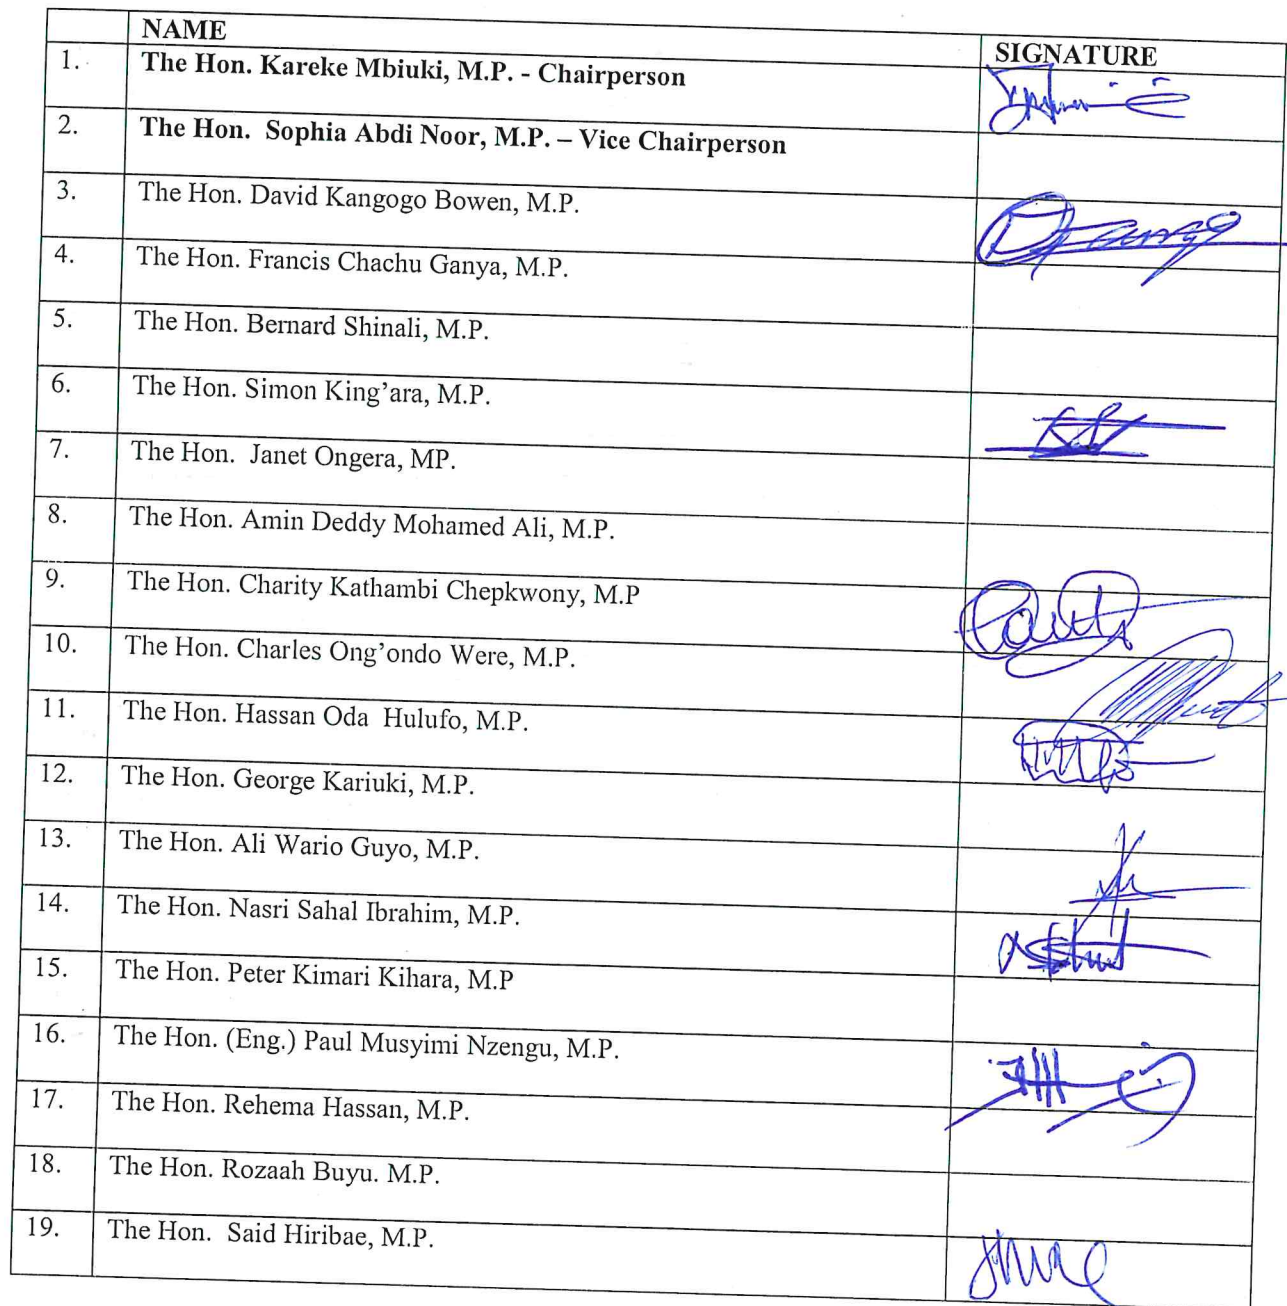 NAME SIGNATURE
1. The Hon. Kareke Mbiuki, M.P. - Chairperson
2. The Hon. Sophia Abdi Noor, M.P. – Vice Chairperson
3. The Hon. David Kangogo Bowen, M.P.
4. The Hon. Francis Chachu Ganya, M.P.
5. The Hon. Bernard Shinali, M.P.
6. The Hon. Simon King’ara, M.P.
7. The Hon. Janet Ongera, MP.
8. The Hon. Amin Deddy Mohamed Ali, M.P.
9. The Hon. Charity Kathambi Chepkwony, M.P
10. The Hon. Charles Ong’ondo Were, M.P.
11. The Hon. Hassan Oda Hulufo, M.P.
12. The Hon. George Kariuki, M.P.
13. The Hon. Ali Wario Guyo, M.P.
14. The Hon. Nasri Sahal Ibrahim, M.P.
15. The Hon. Peter Kimari Kihara, M.P
16. The Hon. (Eng.) Paul Musyimi Nzengu, M.P.
17. The Hon. Rehema Hassan, M.P.
18. The Hon. Rozaah Buyu. M.P.
19. The Hon. Said Hiribae, M.P.